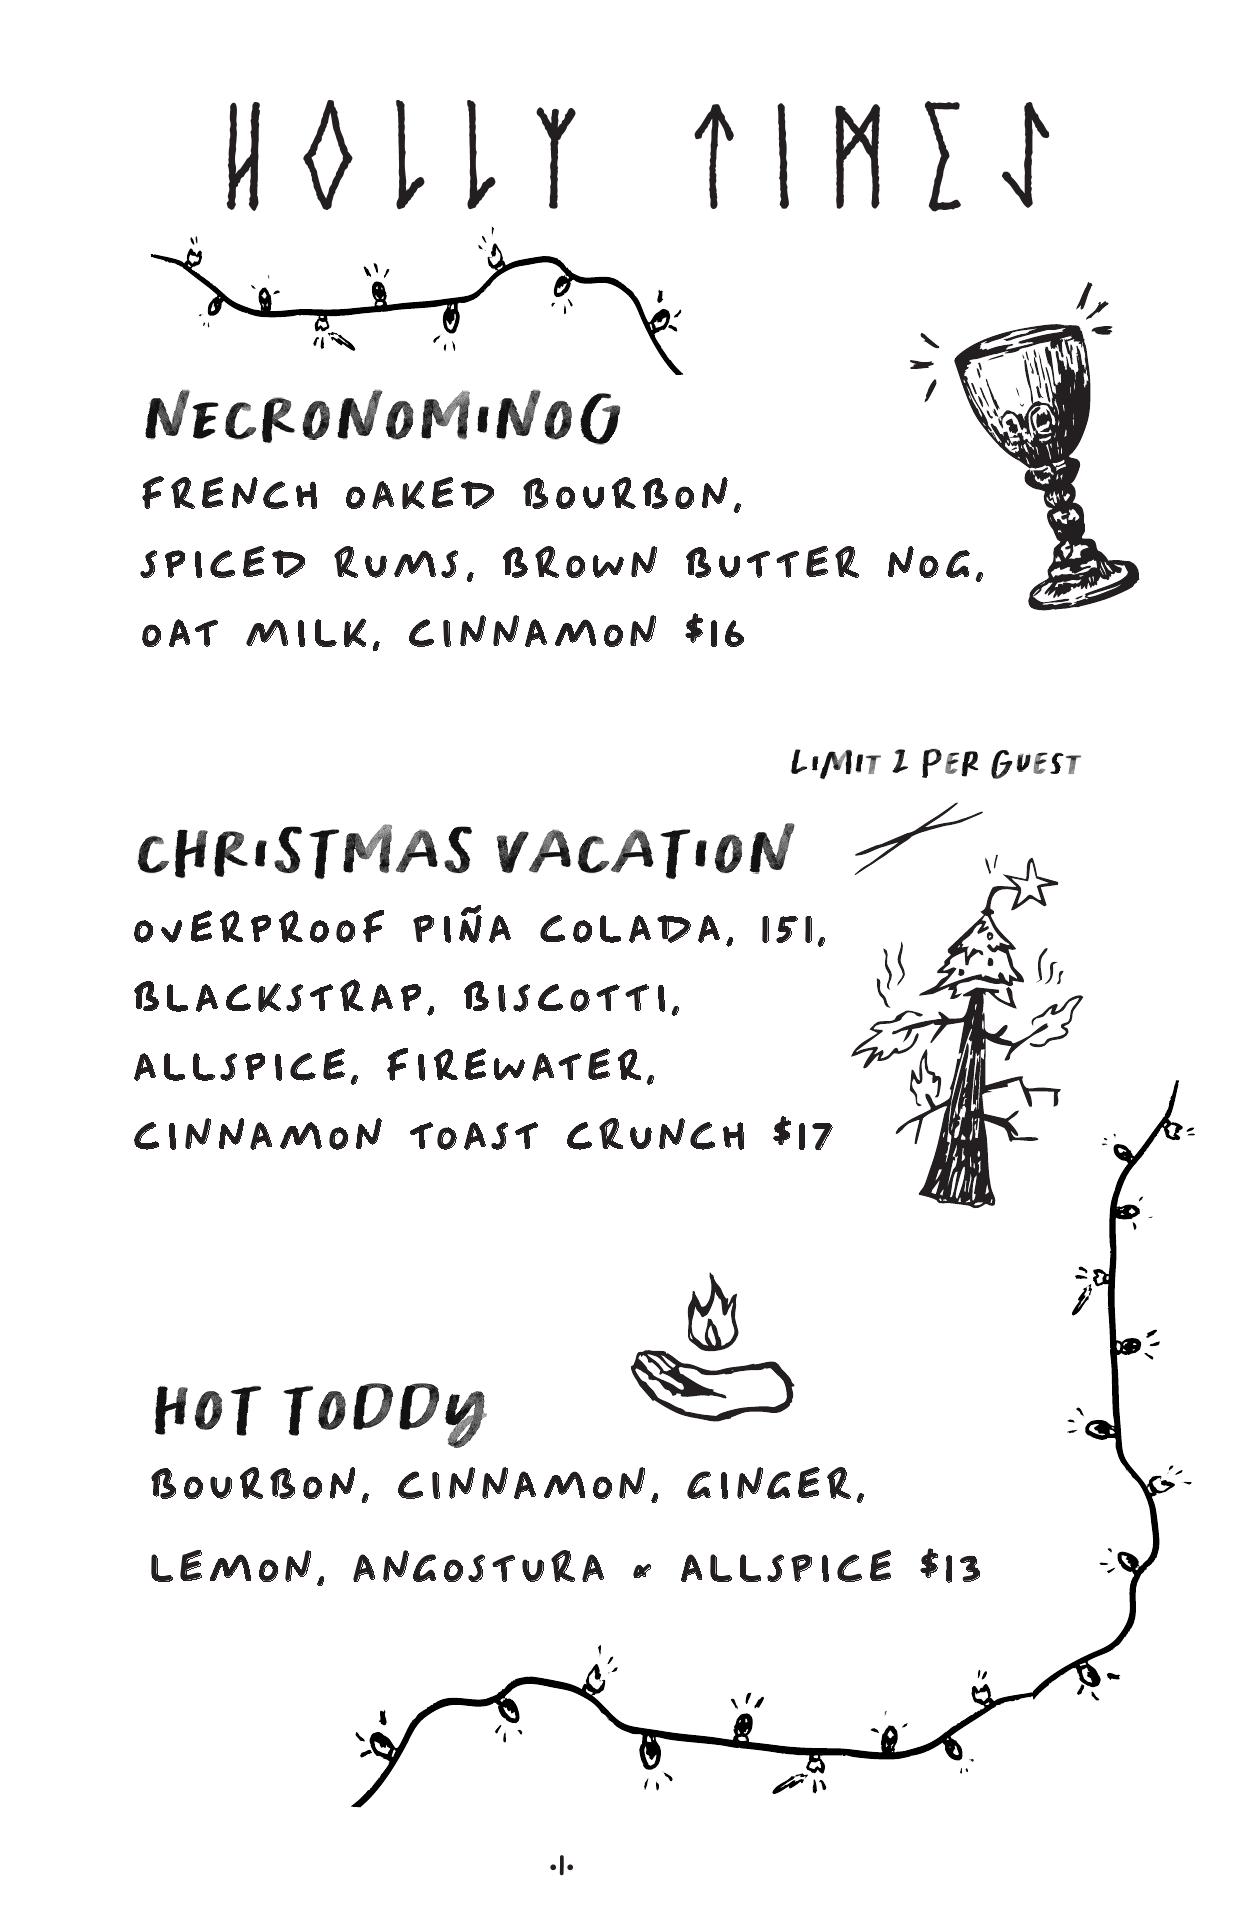 HOLLY TIMES
NECRONOMINOG
FRENCH OAKED BOURBON,
SPICED RUMS, BROWN BUTTER NOG,
OAT MILK, CINNAMON $16
LIMIT 2 PER GUEST
CHRISTMAS VACATION
OVERPROOF PIÑA COLADA, 151,
BLACKSTRAP, BISCOTTI,
ALLSPICE, FIREWATER,
CINNAMON TOAST CRUNCH $17
HOT TODDY
BOURBON, CINNAMON, GINGER,
LEMON, ANGOSTURA & ALLSPICE $13
·|·